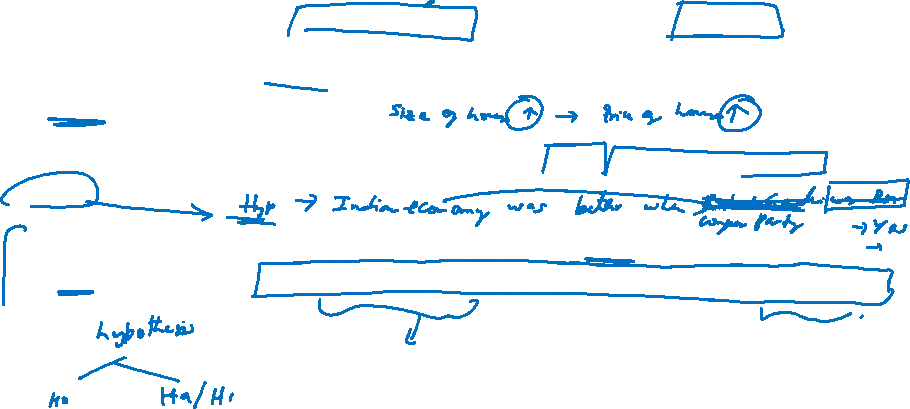 Size of house ↑ → Price of house ↑
Hyp → Indian economy was better when
congress party
→ Yes
→
hypothesis
Ho
Ha/H1